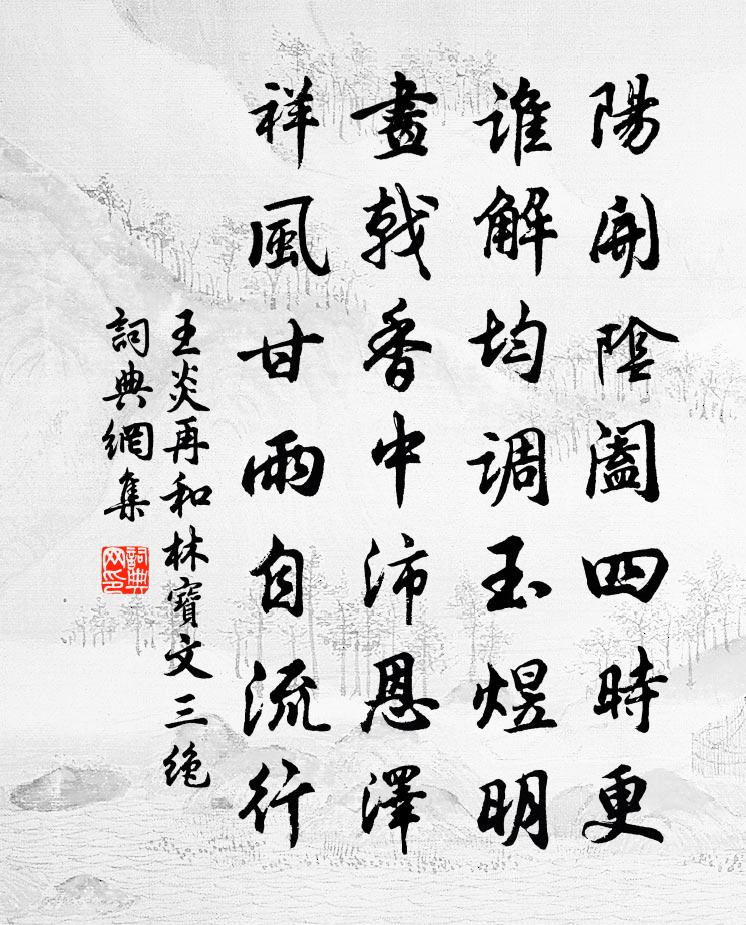 陽開陰闔四時更
誰解均調玉煜明
畫戟香中沛恩澤
祥風甘雨自流行
王炎再和林寶文三绝
詞典網集
詞典
网印